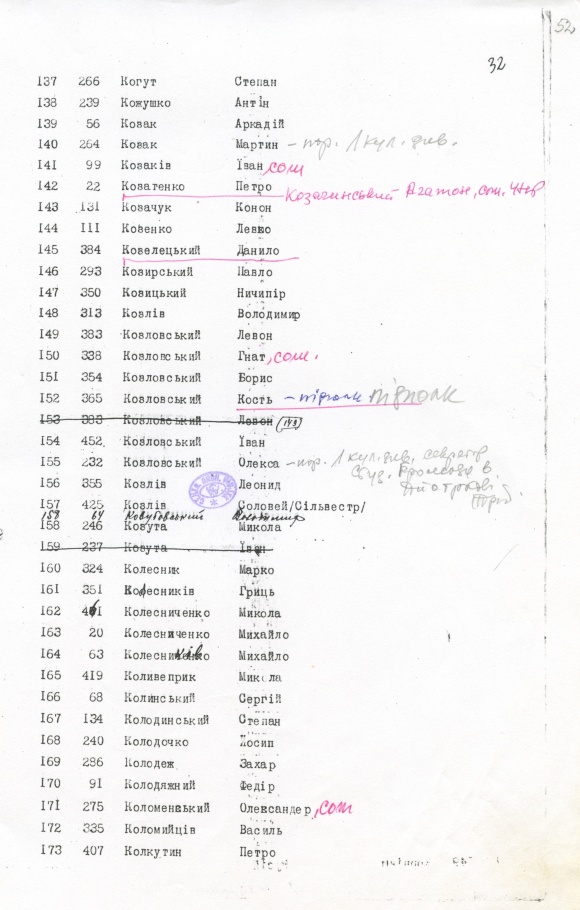 52
32
I37 266 Когут Степан
I38 239 Кожушко Антін
I39 56 Козак Аркадій
I40 264 Козак Мартин – пор. 1 кул. див.
I4I 99 Козаків Іван, сот
I42 22 Козатенко Петро Козачинський Агатон, сот. УНР
I43 I3I Козачук Конон
I44 III Козенко Левко
I45 384 Козелецький Данило
I46 293 Козирський Павло
I47 350 Козицький Ничипір
I48 3I3 Козлів Володимир
I49 383 Козловський Левон
I50 338 Козловський Гнат, сот.
I5I 354 Козловський Борис
I52 365 Козловський Кость – підполк підполк
I53 383 Козловський Левон (149)
I54 452 Козловський Іван
I55 232 Козловський Олекса – пор. 1 кул. див. секретар
I56 355 Козлів Леонид
I57 425 Козлів Соловей/Сільвестр/
158 64
I58 246 Козута Микола
I59 237 Козута Іван
I60 324 Колесник Марко
I6I 35I Колесників Гриць
I62 4 I Колесниченко Микола
I63 20 Колесниченко Михайло
I64 63 Колесників Михайло
I65 4I9 Коливеприк Микола
I66 68 Колинський Сергій
I67 I34 Колодинський Степан
I68 240 Колодочко Йосип
I69 286 Колодеж Захар
I70 9I Колодяжний Федір
I7I 275 Коломенський Олександер, сот
I72 335 Коломийців Василь
I73 407 Колкутин Петро